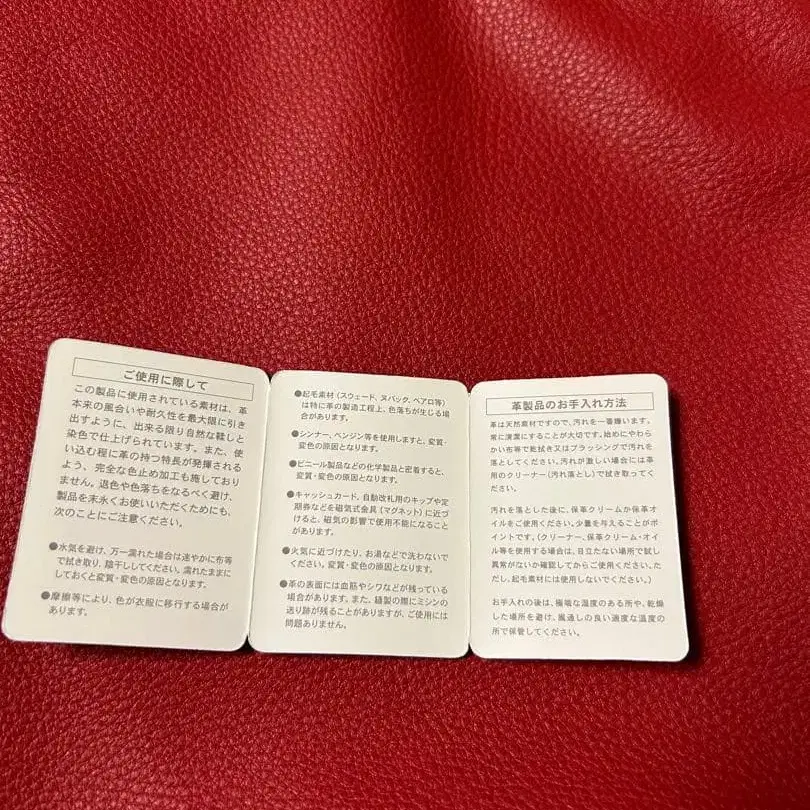 ご使用に際して
この製品に使用されている素材は、革
本来の風合いや耐久性を最大限に引き
出すように、出来る限り自然な鞣しと
染色で仕上げられています。また、使
い込む程に革の持つ特長が発揮される
よう、完全な色止め加工も施しており
ません。退色や色落ちをなるべく避け、
製品を末永くお使いいただくためにも、
次のことにご注意ください。
●水気を避け、万一濡れた場合は速やかに布等
で拭き取り、陰干ししてください。濡れたままに
しておくと変質・変色の原因となります。
●摩擦等により、色が衣服に移行する場合が
あります。
●起毛素材（スウェード、ヌバック、ベアロ等）
は特に革の製造工程上、色落ちが生じる場
合があります。
●シンナー、ベンジン等を使用しますと、変質・
変色の原因となります。
●ビニール製品などの化学製品と密着すると、
変質・変色の原因となります。
●キャッシュカード、自動改札用のキップや定
期券などを磁気式金具（マグネット）に近づ
けると、磁気の影響で使用不能になること
があります。
●火気に近づけたり、お湯などで洗わないで
ください。変質・変色の原因となります。
●革の表面には血筋やシワなどが残っている
場合があります。また、縫製の際にミシンの
送り跡が残ることがありますが、ご使用には
問題ありません。
革製品のお手入れ方法
革は天然素材ですので、汚れを一番嫌います。
常に清潔にすることが大切です。始めにやわら
かい布等で乾拭き又はブラッシングで汚れを
落としてください。汚れが激しい場合には革
用のクリーナー（汚れ落とし）で拭き取ってく
ださい。
汚れを落とした後に、保革クリームか保革オ
イルをご使用ください。少量を与えることがポ
イントです。（クリーナー、保革クリーム・オイ
ル等を使用する場合は、目立たない場所で試し
異常がないか確認してからご使用ください。た
だし、起毛素材には使用しないでください。）
お手入れの後は、極端な温度のある所や、乾燥
した場所を避け、風通しの良い適度な温度の
所で保管してください。